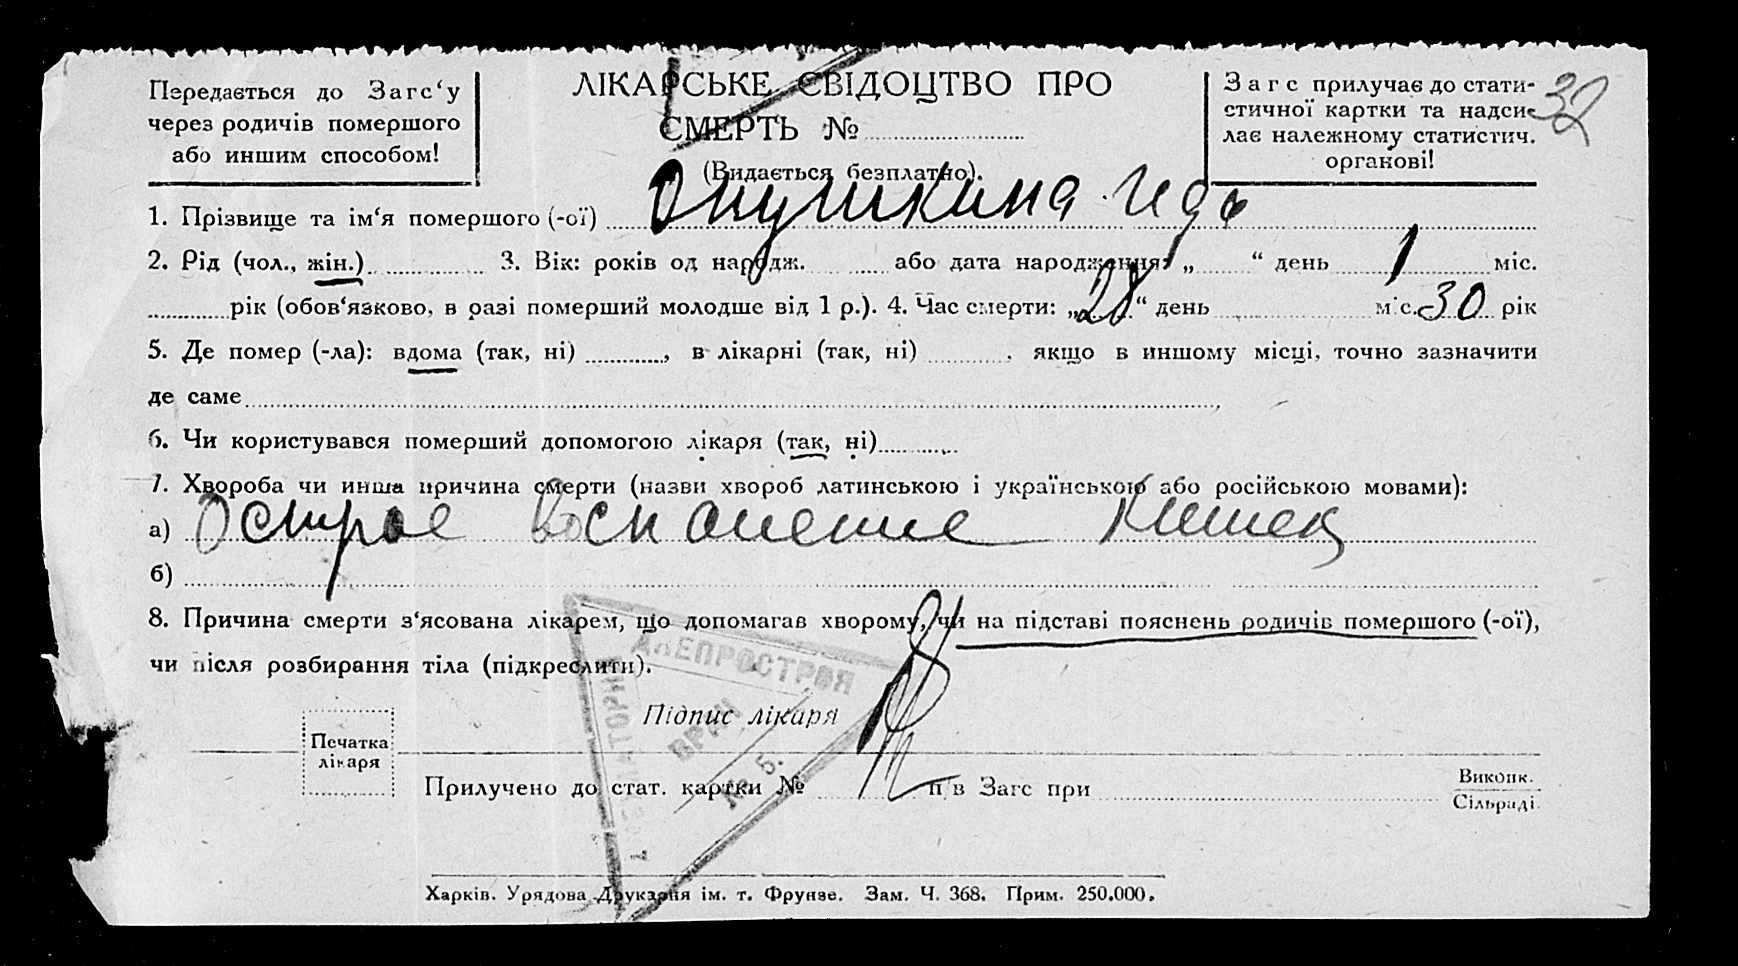 Передається до Загс‘у
через родичів помершого
або иншим способом!
ЛІКАРСЬКЕ СВІДОЦТВО ПРО
СМЕРТЬ №
(Видається безплатно).
Загс прилучає до стати-
стичної картки та надси-
лає належному статистич.
органові!
32
1. Прізвище та ім‘я помершого (-ої) Опушкина
2. Рід (чол., жін.) 3. Вік: років од народж. або дата народження: „ “ день 1 міс.
рік (обов‘язково, в разі померший молодше від 1 р.). 4. Час смерти: „28“ день міс. 30 рік
5. Де помер (-ла): вдома (так, ні) , в лікарні (так, ні) , якщо в иншому місці, точно зазначити
де саме
6. Чи користувався померший допомогою лікаря (так, ні)
7. Хвороба чи инша причина смерти (назви хвороб латинською і українською або російською мовами):
а) Острое воспаление кишек
б)
8. Причина смерти з‘ясована лікарем, що допомагав хворому, чи на підставі пояснень родичів помершого (-ої),
чи після розбирання тіла (підкреслити).
ДНЕПРОСТРОЯ
ВРАЧ
№ 5.
Підпис лікаря
Печатка
лікаря
Прилучено до стат. картки № п в Загс при
Виконк.
Сільраді
Харків. Урядова Друкарня ім. т. Фрунзе. Зам. Ч. 368. Прим. 250.000.